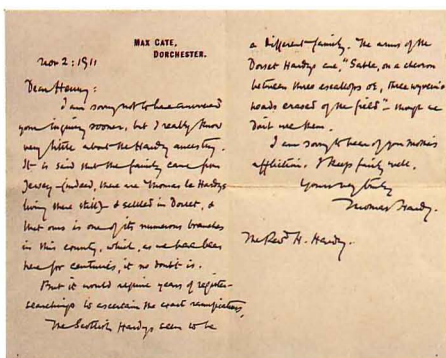 MAX GATE,
DORCHESTER.
Nov 2: 1911
Dear Henry:
I am sorry not to have answered
your inquiry sooner, but I really know
very little about the Hardy ancestry.
It is said that the family came from
Jersey – (indeed, there are Thomas le Hardys
living there still) – & settled in Dorset, &
that ours is one of its numerous branches
in this county, which, as we have been
here for centuries, it no doubt is.
But it would require years of register-
searchings to ascertain the exact ramifications.
The Scottish Hardys seem to be
a different family. The arms of the
Dorset Hardys are, "Sable, on a chevron
between three escallops or, three wyvern's
heads erased of the field" – though we
don't use them.
I am sorry to hear of your mother's
affliction. I keep fairly well.
Yours very truly
Thomas Hardy.
The Revd H. Hardy.